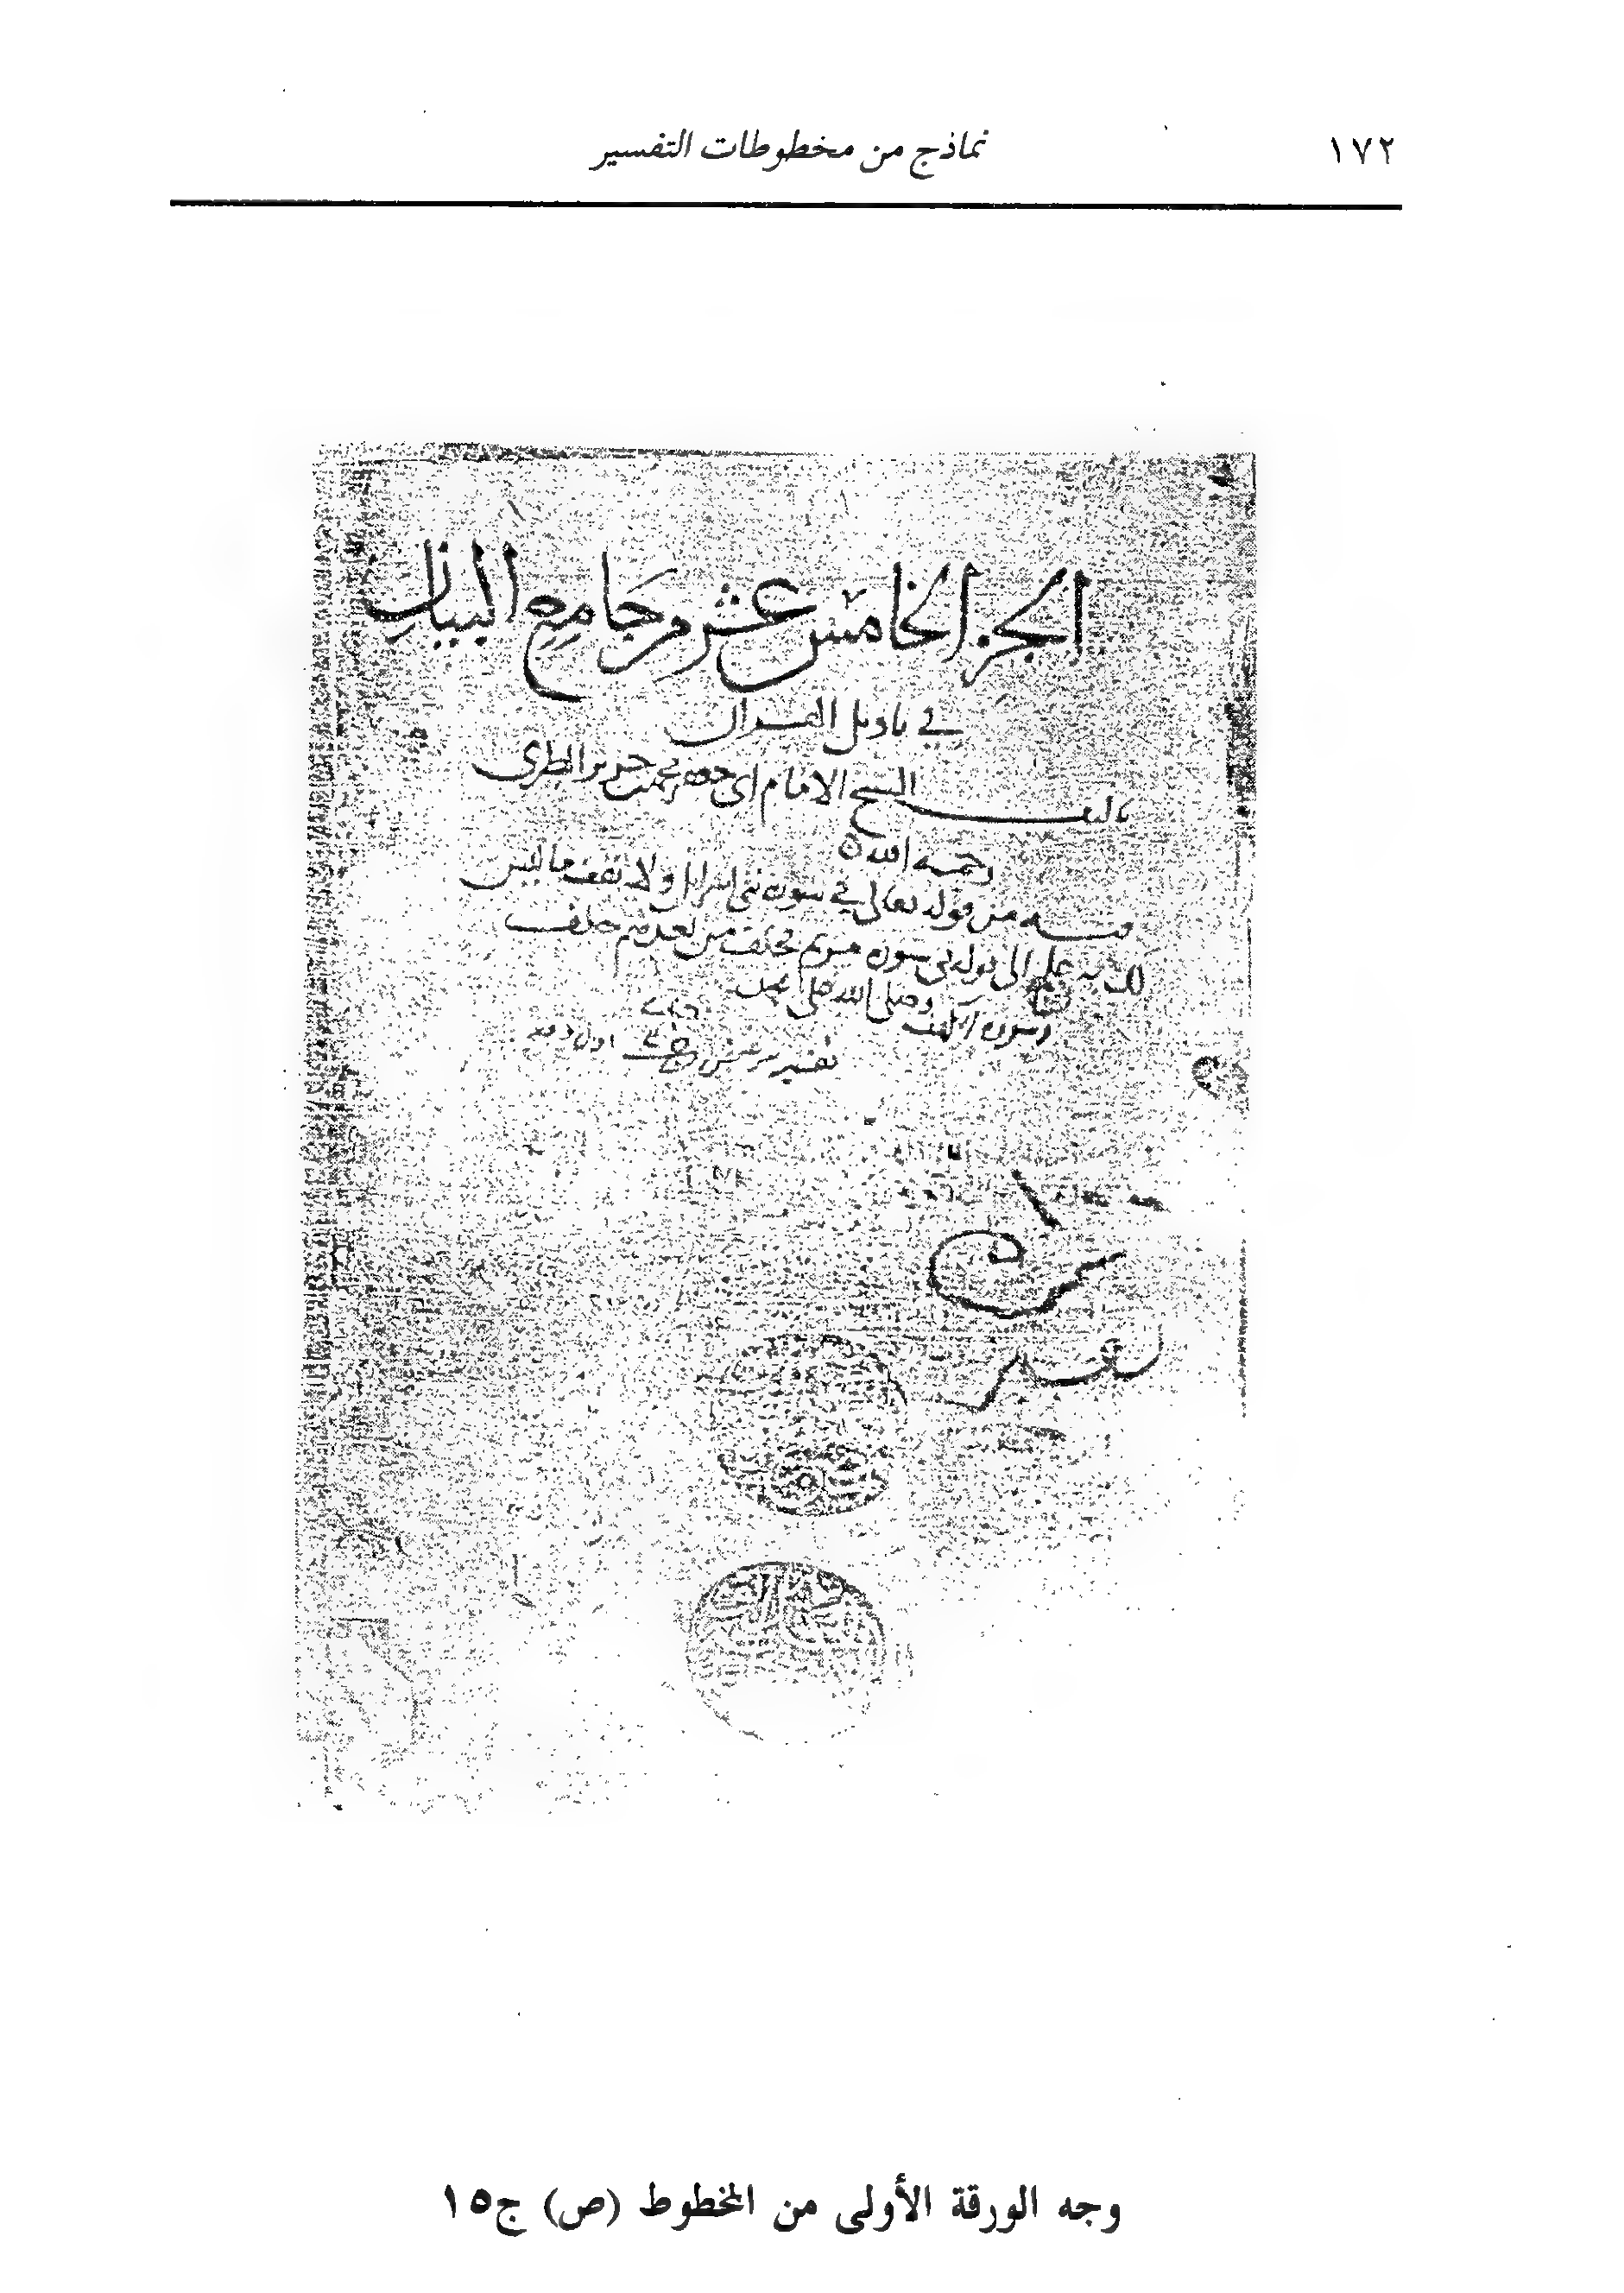 ١٧٢
نماذج من مخطوطات التفسير
الجز الخامس عشر من جامع البيان
في تاويل القران
تاليف الشيخ الامام ابي جعفر محمد بن جرير الطبري
رحمه الله
فيه من قوله تعالى في سورة بني اسرايل ولا تقف ما ليس
لك به علم الى قوله في سورة مريم فخلف من بعدهم خلف
وصلى الله على محمد
وسورة الكهف
تفسير
تفسير
وجه الورقة الأولى من المخطوط (ص) ج١٥